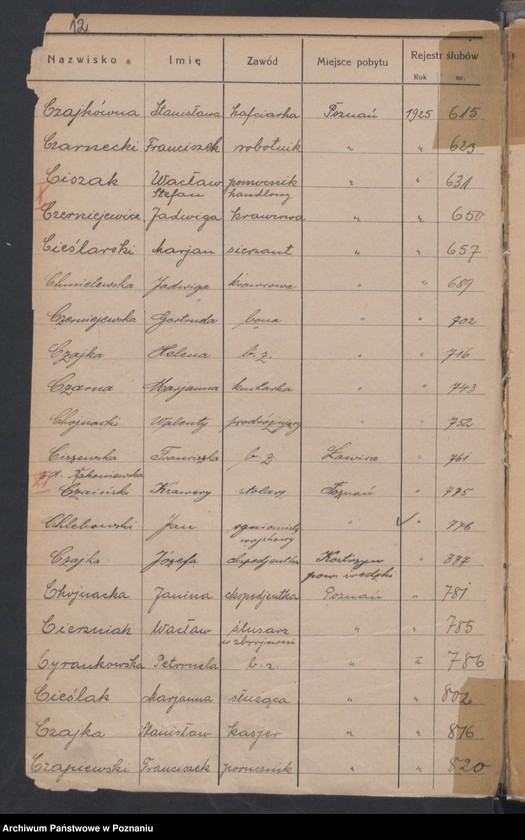 12
Nazwisko a Imię Zawód Miejsce pobytu Rejestr ślubów
Rok nr.
Czajkówna Stanisława hafciarka Poznań 1925 615
Czarnecki Franciszek robotnik " " 623
Ciszak Wacław pomocnik " " 631
Stefan handlowy
Czerniejewicz Jadwiga krawcowa " " 650
Cieślarski Marjan sierżant " " 657
Chmielewska Jadwiga krawcowa " " 689
Czerniejewska Gertruda bona " " 702
Czajka Helena b. z. " " 716
Czarna Marjanna " " 743
Chojnacki Walenty " " 752
Ciszewska Franciszka b. z. Ławica " 761
Ksawery stolarz Poznań " 775
Chlebowski Jan " " 776
wojskowy
Czajka Józefa ekspedjentka Kostrzyn "
pow. średzki
Chojnacka Janina ekspedjentka Poznań " 781
Cierzniak Wacław ślusarz " " 785
w zbrojowni
Cyrankowska Petronela b. z. " " 786
Cieślak Marjanna służąca " " 802
Czajka Stanisław kasjer " " 816
Czapiewski Franciszek porucznik " " 820
Archiwum Państwowe w Poznaniu